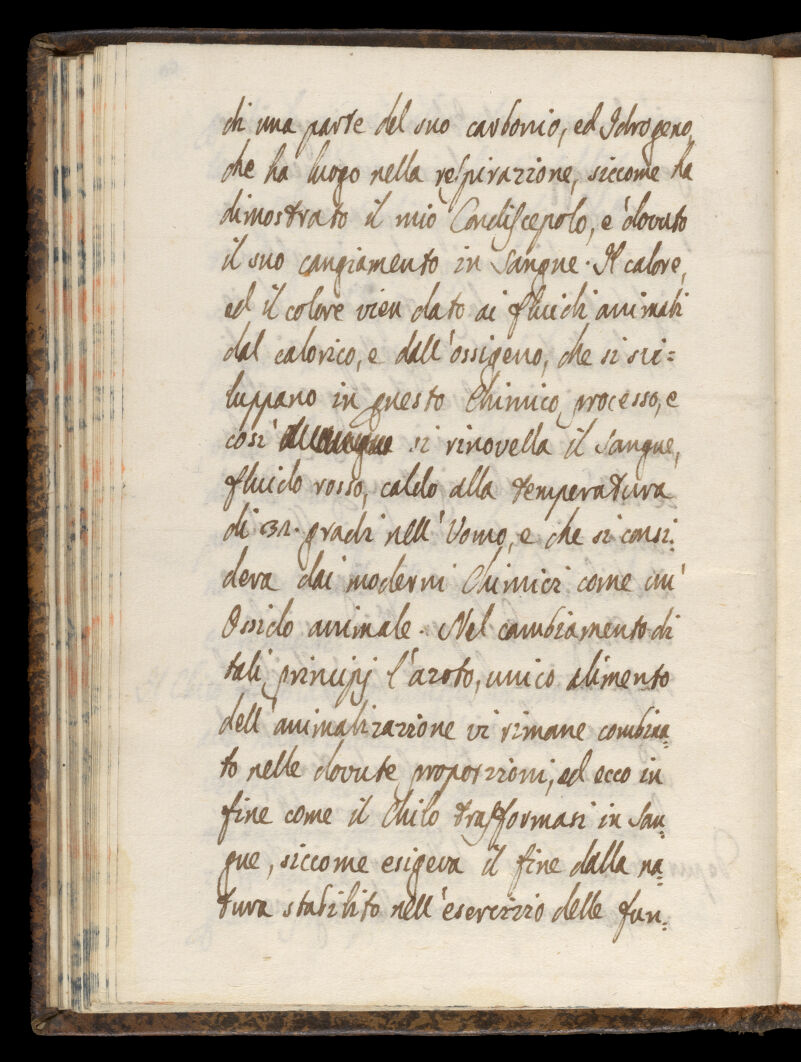 di una parte del suo carbonio, ed Idrogeno,
che ha luogo nella respirazione, siccome ha
dimostrato il mio Condiscepolo, e' dovuto
il suo cangiamento in Sangue. Il calore,
ed il colore vien dato ai fluidi animali
dal calorico, e dall'ossigeno, che si svi=
luppano in questo Chimico processo, e
così si rinovella il Sangue,
fluido rosso, caldo alla temperatura
di 32. gradi nell'Uomo, e che si consi=
dera dai moderni Chimici come un'
Ossido animale. Nel cambiamento di
tali principj l'azoto, unico alimento
dell'animalizazione vi rimane combina=
to nelle dovute proporzioni, ed ecco in
fine come il Chilo trasformasi in San=
gue, siccome esigeva il fine dalla na=
tura stabilito nell'esercizio delle fun=